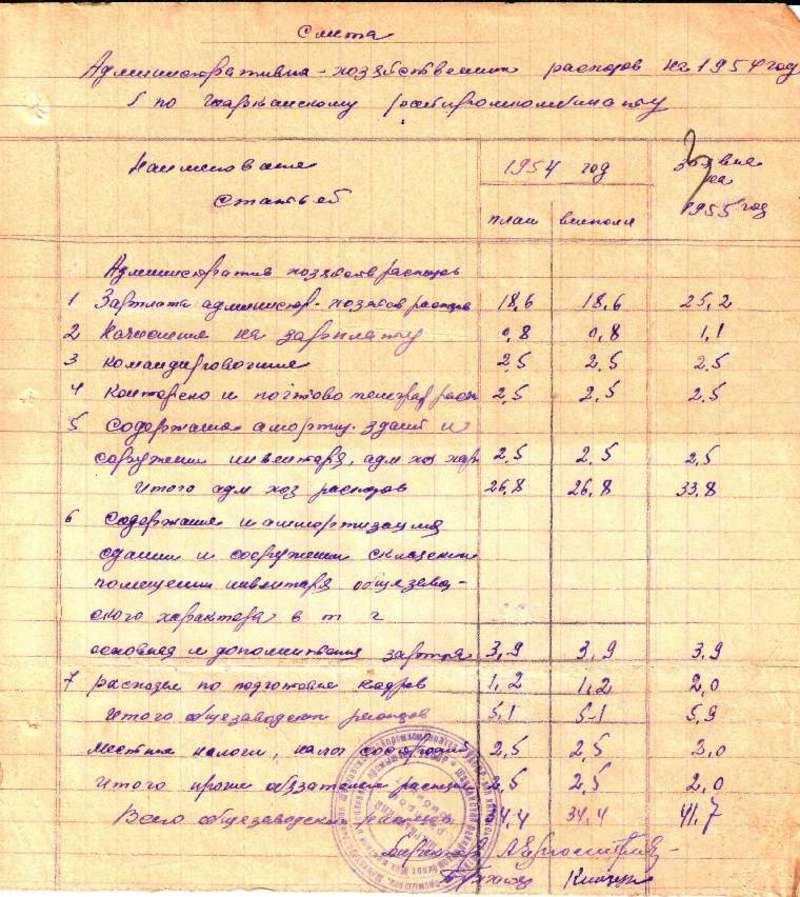 Смета
Административна-хозяйственних расходов на 1954 год
по райпромкомбинату
Наименование 1954 год
статьей на
план выполн 1955 год
Административ хозяйств расходов
1 Зарплата администр-хозяйсв расходов 18,6 18,6 25,2
2 Начисления на зарплату 0,8 0,8 1,1
3 командировочние 2,5 2,5 2,5
4 Конторско и почтово телеграф расх 2,5 2,5 2,5
5 Содержание амортиз. зданий и
соружении инвентаря, адм хоз хар 2,5 2,5 2,5
Итого адм хоз расходов 26,8 26,8 33,8
6 Содержание и аммортизация
здании и сооружении складских
помещении инвентаря общезавод-
ского характера в т г
основная и дополнительная зарпла 3,9 3,9 3,9
7 расходы по подготовке кадров 1,2 1,2 2,0
Итого общезаводских расходов 5,1 5-1 5,9
местние налоги, налог 2,5 2,5 2,0
Итого проши обязательн расходи 2,5 2,5 2,0
Всего общезаводских расходов 34,4 34,4 41,7